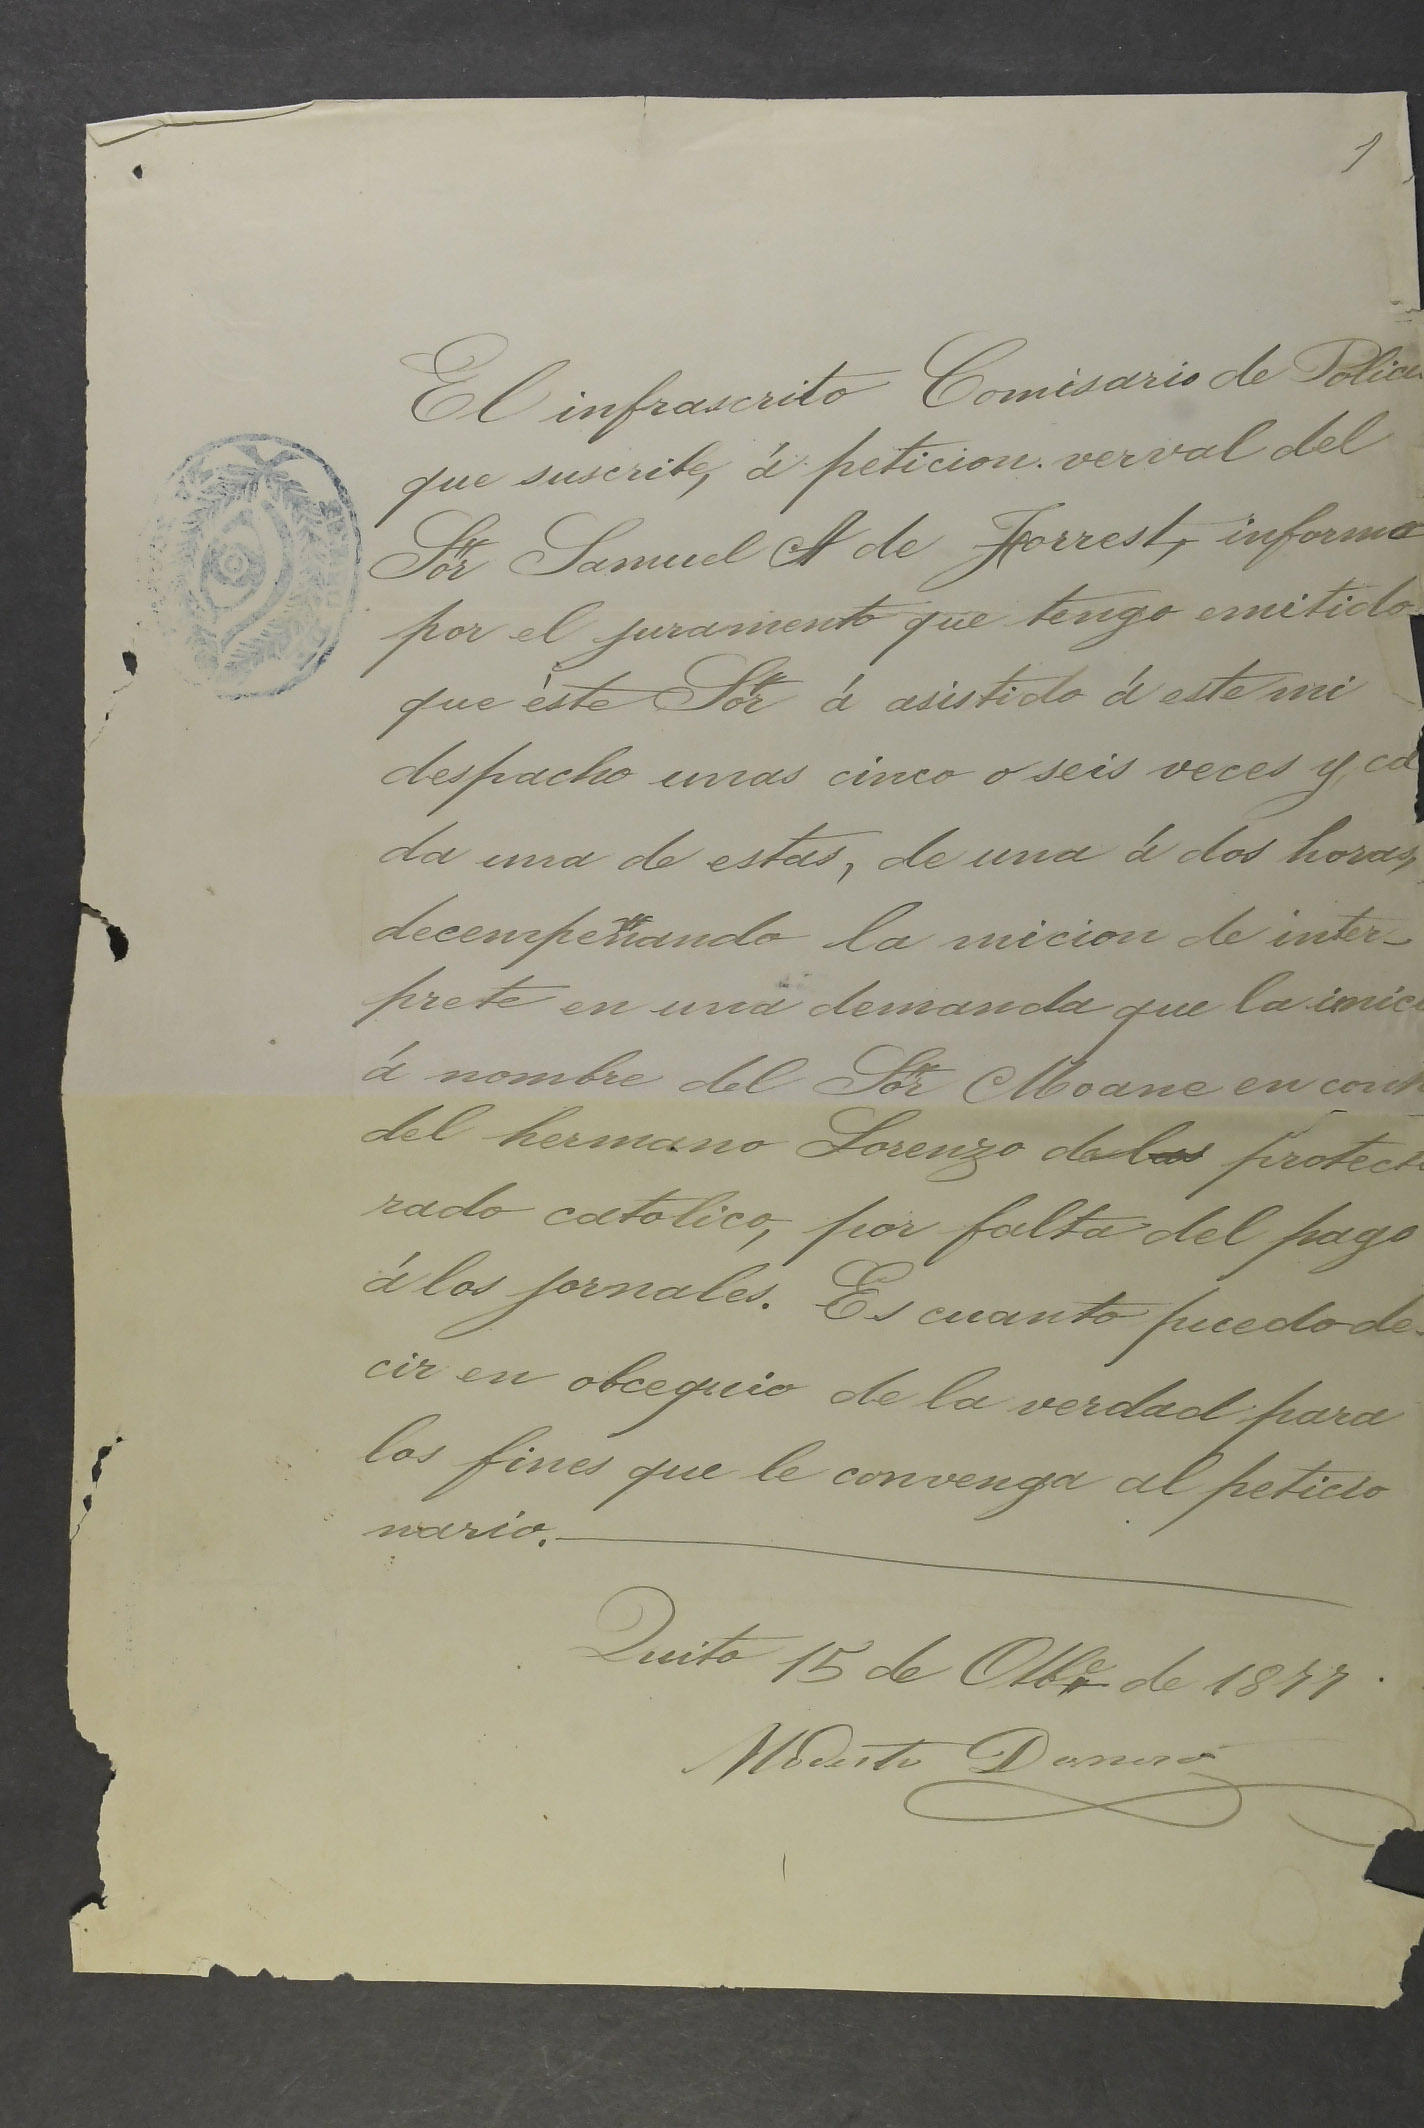 1
El infrascrito Comisario de Policia
que suscribe, á peticion verval del
Sor Samuel A de Forrest, informa
por el juramento que tengo emitido
que éste Sor á asistido á este mi
despacho unas cinco o seis veces y ca
da una de estas, de una á dos horas,
decempeñando la micion de inter-
prete en una demanda que la inicio
á nombre del Sor Moane en contra
del hermano Lorenzo de las protecto
rado catolico, por falta del pago
á los jornales. Es cuanto puedo de-
cir en obcequio de la verdad para
los fines que le convenga al peticio
nario.
Quito 15 de Otbre de 1877.
Modesto